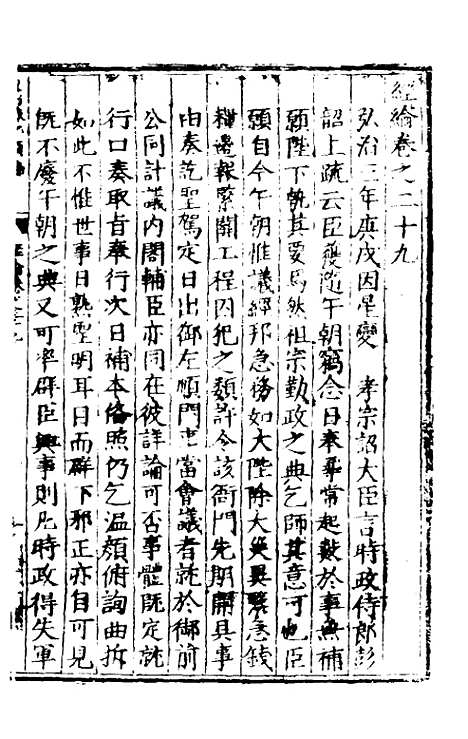 經綸卷之二十九
弘治三年庚戌因星變　孝宗詔大臣言時政侍郎彭
韶上疏云臣獲隨午朝竊念日奉尋常起數於事無補
願陛下執其要焉然祖宗勤政之典乞師其意可也臣
願自今午朝惟議經邦急務如大陞除大災異緊急錢
糧邊報緊關工程囚犯之類許令該衙門先期開具事
由奏訖聖駕定日出御左順門凡當會議者就於御前
公同計議內閣輔臣亦同在彼詳論可否事體既定就
行口奏取旨奉行次日補本備照仍乞温顏俯詢曲折
如此不惟世事日熟聖明耳目而群下邪正亦自可見
既不廢午朝之典又可率群臣興事則凡時政得失軍